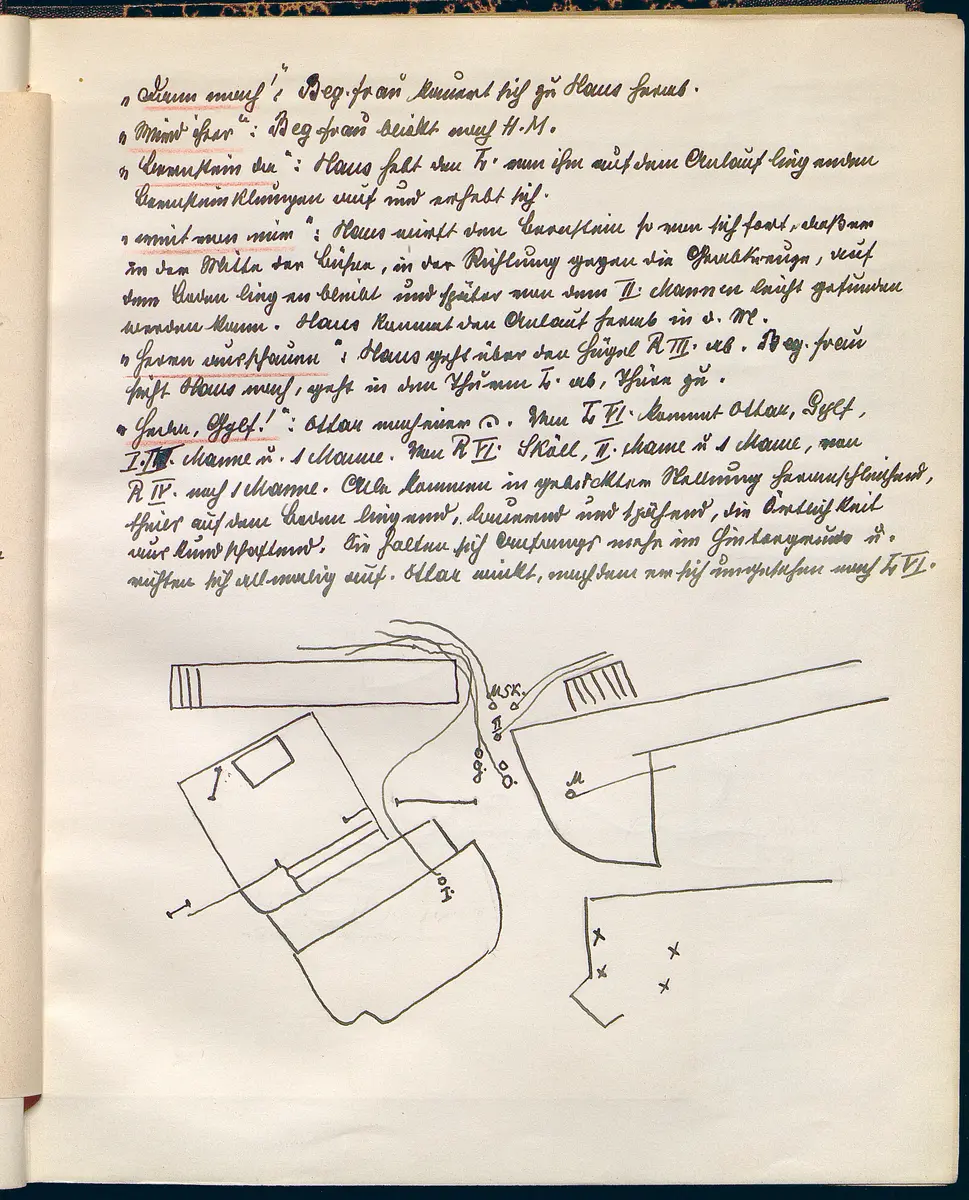 „Dann nach!“: Beg. frau kauert sich zu Hans herab.
„Wird ihrer“: Beg frau blickt nach H. M.
„Bernstein da“: Hans hebt den L. von ihm auf dem Anlauf liegenden
Bernsteinklumpen auf und erhebt sich.
„weit von mir“: Hans wirft den Bernstein so von sich fort, daß er
in der Mitte der Bühne, in der Richtung gegen die Grabkreuze, auf
dem Boden liegen bleibt und später von dem II. Mannen leicht gefunden
werden kann. Hans kommt den Anlauf herab in d. M.
„Herrn ausschauen“: Hans geht über den Hügel R III. ab. Beg. frau
sieht Hans nach, geht in den Thurm L. ab, Thüre zu.
„Hedn, Gylf!“: Ottar nach einer 𝄐. Von L VI. kommt Ottar, Gylf,
I. III. Manne u. 1 Manne. Von R VI. Sköll, II. Manne u 1 Manne, von
R IV. noch 1 Manne. Alle kommen in gebückter Stellung heranschleichend,
theils auf dem Boden liegend, lauernd und spähend, die Örtlichkeit
auskundschaftend. Sie halten sich Anfangs mehr im Hintergrunde u.
richten sich allmälig auf. Ottar winkt, nachdem er sich umgesehen nach L VI.
M SK.
II
M
I.